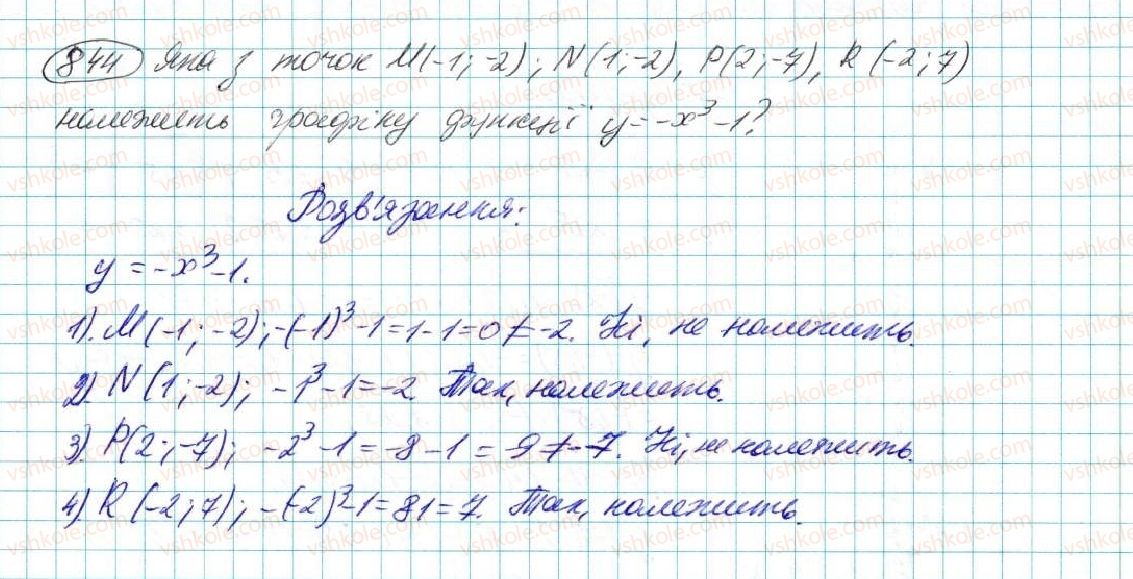 844 Яка з точок M(-1; -2); N(1; -2), P(2; -7), R(-2; 7)
належить графіку функції y = -x³ - 1?
Розв'язання:
y = -x³ - 1.
1). M(-1; -2); -(-1)³ - 1 = 1 - 1 = 0 ≠ -2. Ні, не належить.
2). N(1; -2); -1³ - 1 = -2. Так, належить.
3). P(2; -7); -2³ - 1 = -8 - 1 = -9 ≠ -7. Ні, не належить.
4). R(-2; 7); -(-2)³ - 1 = 81 = 7. Так, належить.